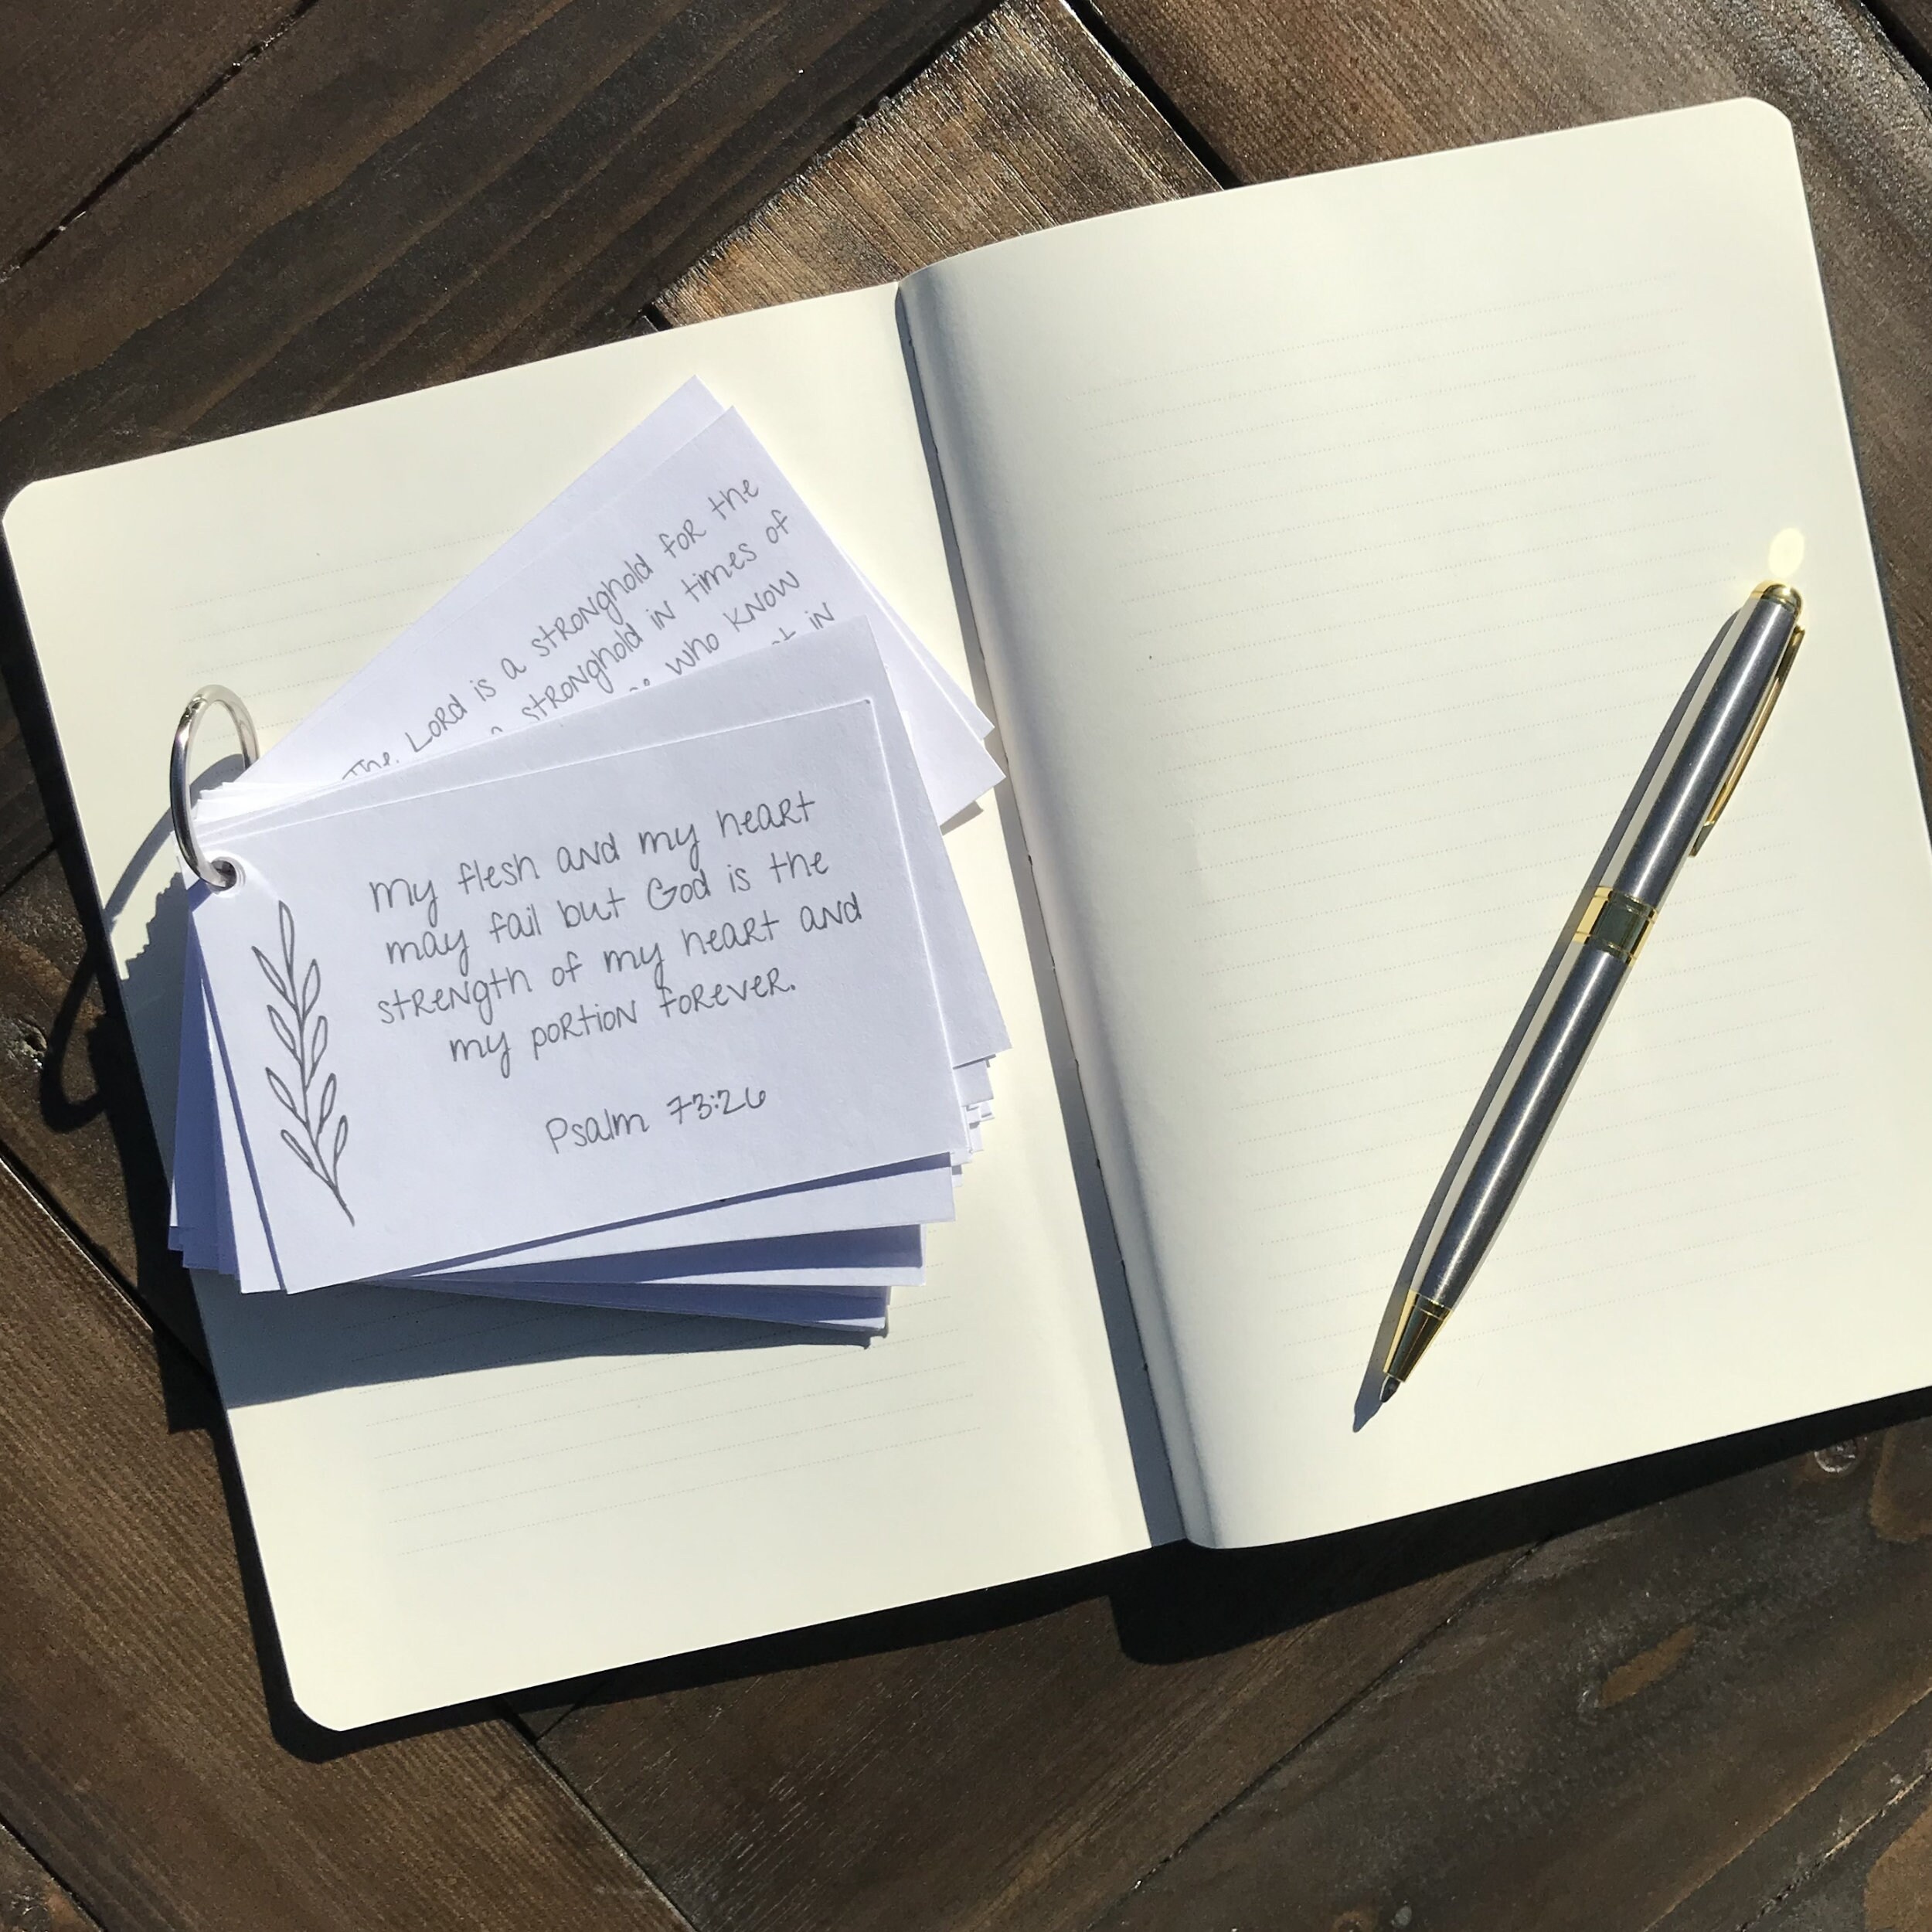 The Lord is a stronghold for the
stronghold in times of
who know
in
My flesh and my heart
may fail but God is the
strength of my heart and
my portion forever.
Psalm 73:26